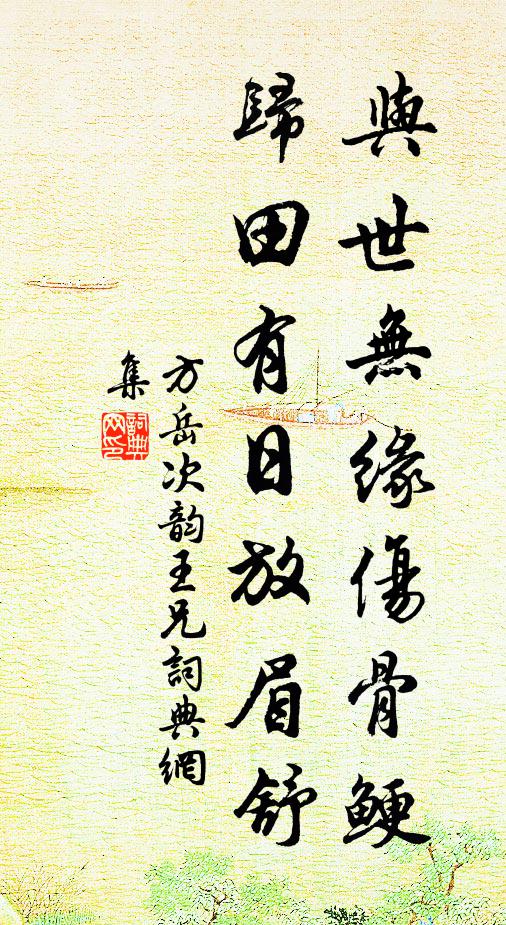 與世無緣傷骨鯁
歸田有日放眉舒
方岳次韵王兄詞典網
集
詞典
网印